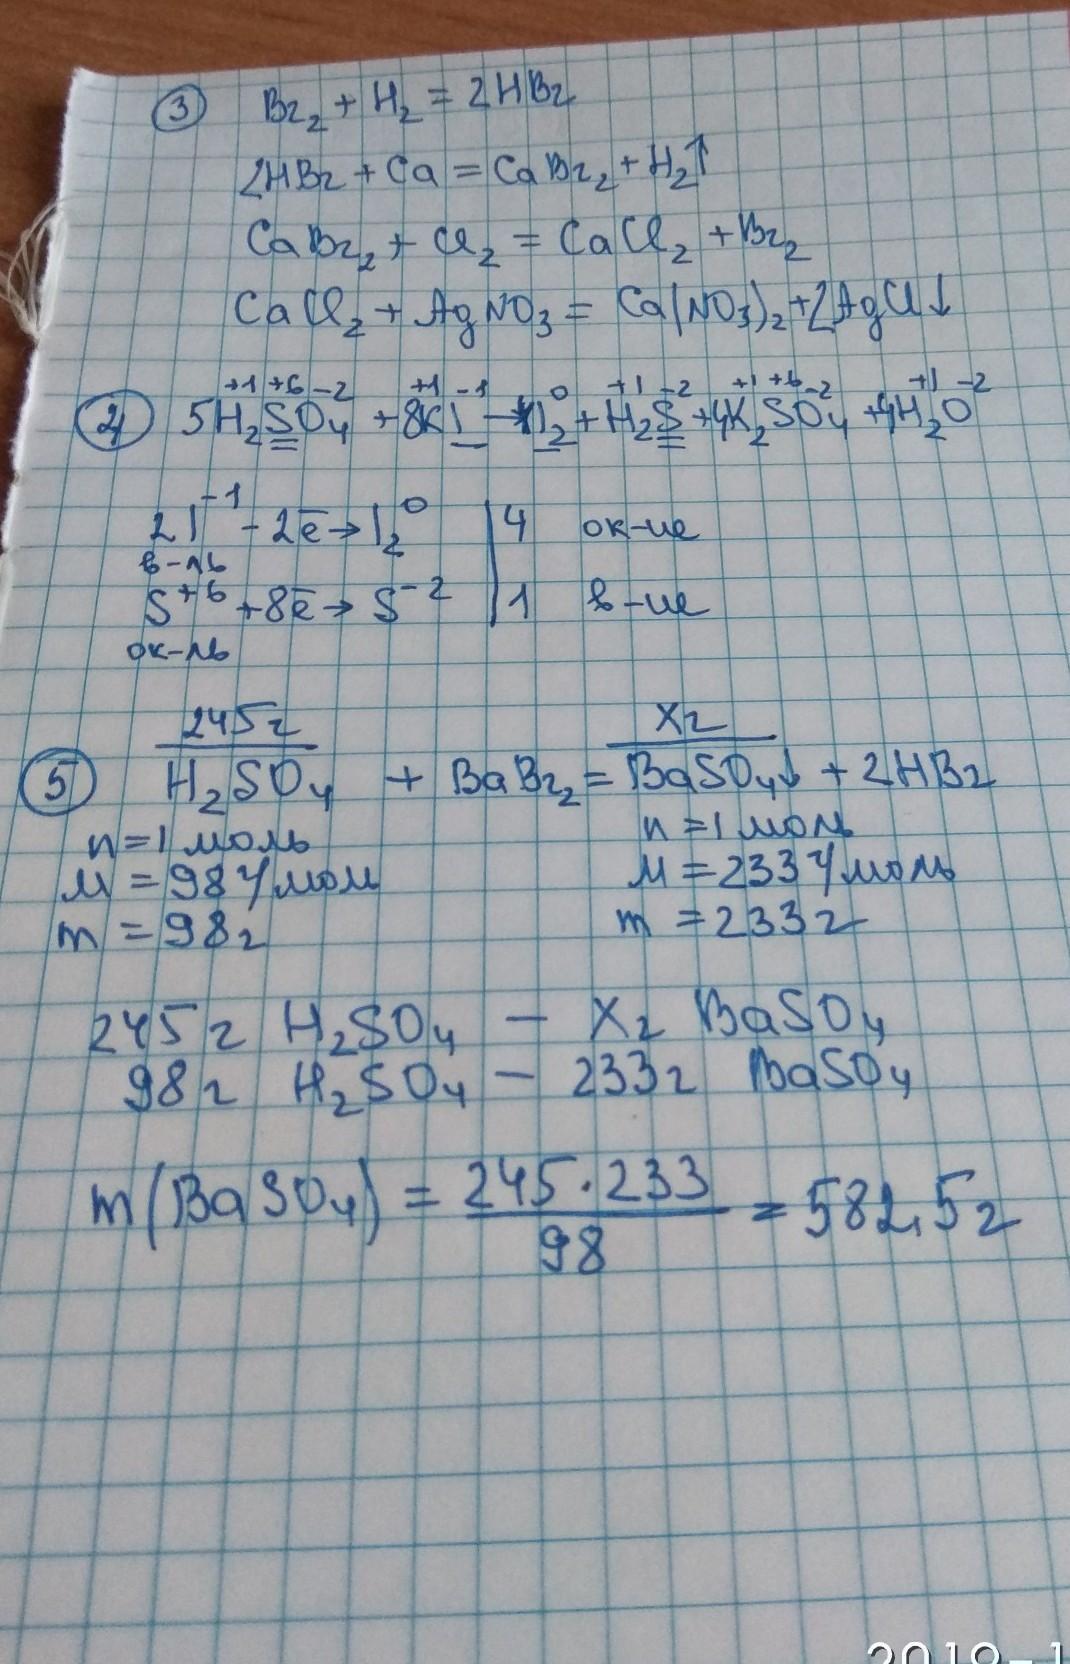 ③ Br₂ + H₂ = 2HBr
2HBr + Ca = CaBr₂ + H₂↑
CaBr₂ + Cl₂ = CaCl₂ + Br₂
CaCl₂ + AgNO₃ = Ca(NO₃)₂ + 2AgCl↓
+1 +6 -2 +1 -1 0 +1 -2 +1 +6 -2 +1 -2
5H₂SO₄ + 8KI → 4I₂ + H₂S + 4K₂SO₄ + 4H₂O
2I⁻¹ - 2ē → I₂⁰ | 4 ок-ие
в-ль
S⁺⁶ + 8ē → S⁻² | 1 в-ие
ок-ль
245г Xг
⑤ H₂SO₄ + BaBr₂ = BaSO₄↓ + 2HBr
n = 1 моль n = 1 моль
M = 98 г/моль M = 233 г/моль
m = 98г m = 233г
245г H₂SO₄ - Xг BaSO₄
98г H₂SO₄ - 233г BaSO₄
m(BaSO₄) = 245·233 / 98 = 582,5г